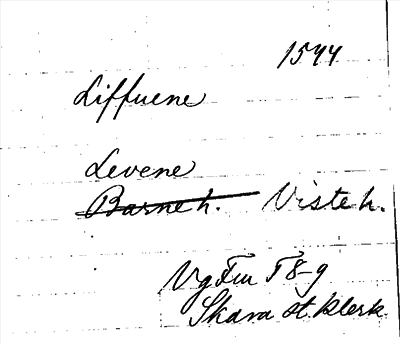 1544
Liffuene
Levene
Barneh. Visteh.
Vg Fm T 8-9
Skara st. klerk